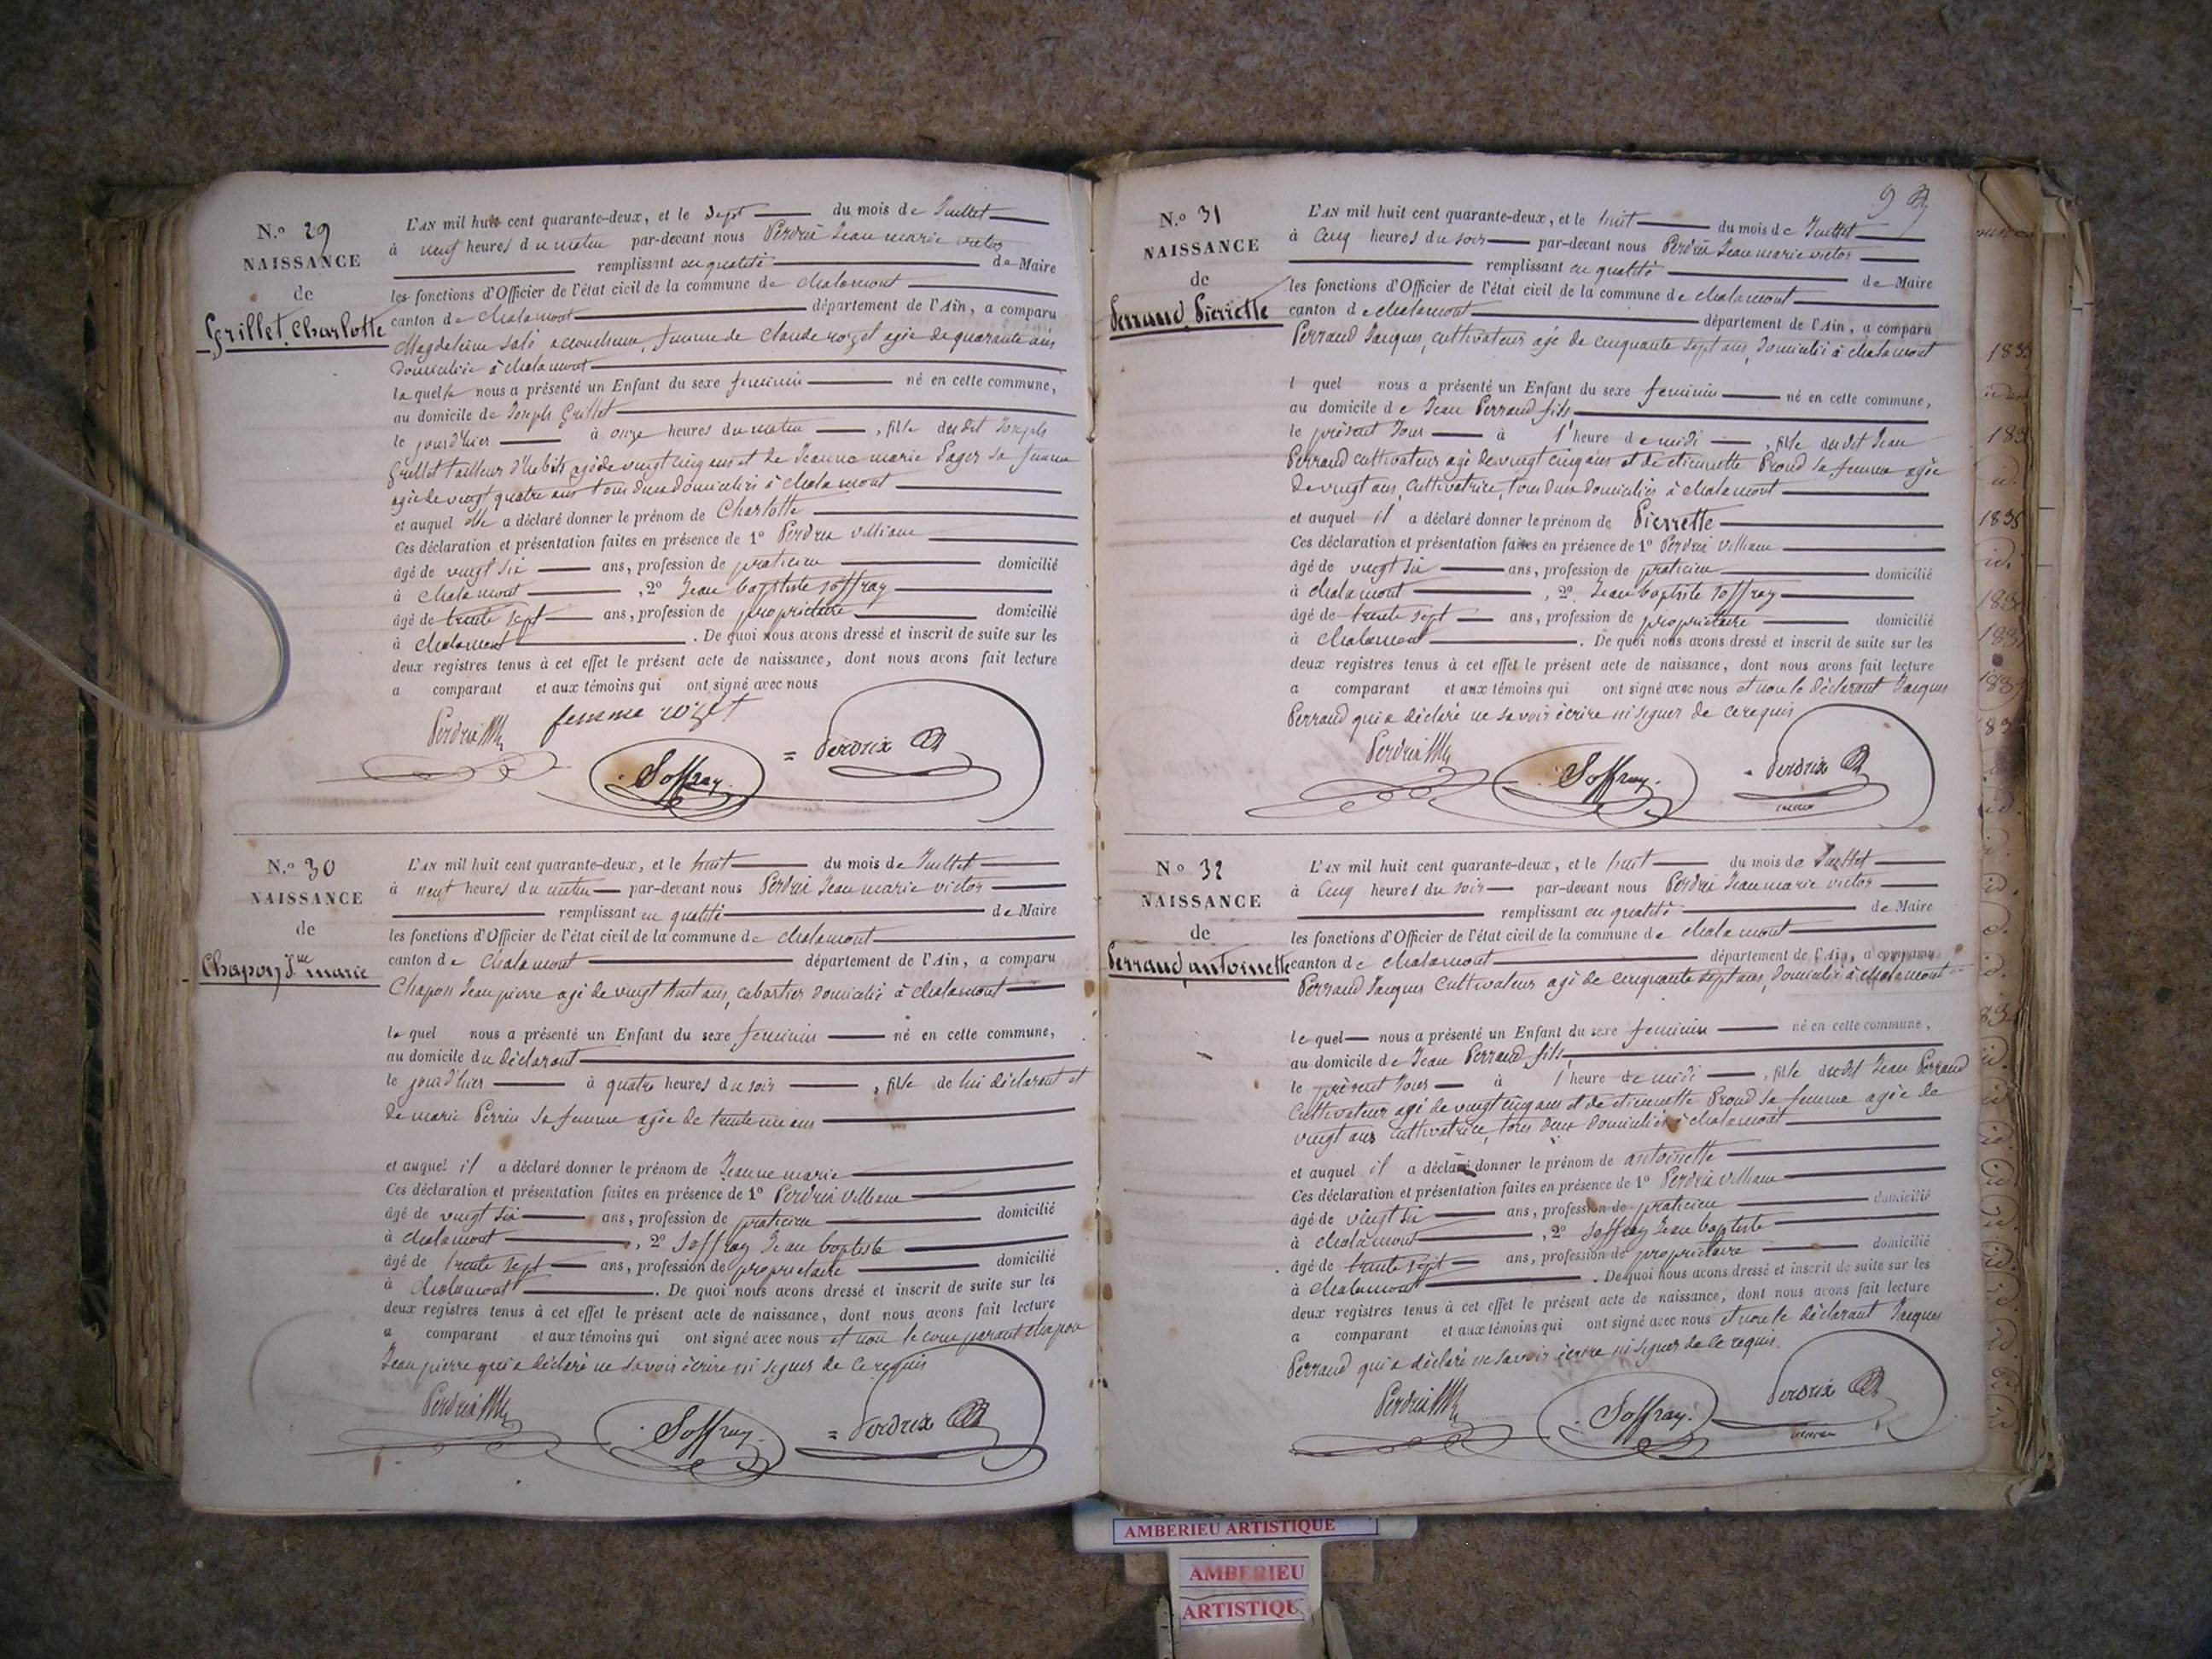 N.o 29
NAISSANCE
de
Grillet Charlotte
L'AN mil huit cent quarante-deux, et le sept du mois de Juillet
à neuf heures du matin par-devant nous Perdrix Jean marie victor
remplissant en qualité de Maire
les fonctions d'Officier de l'état civil de la commune de chalamont
canton de chalamont département de l'Ain, a comparu
Magdeleine accoucheuse, femme de Claude rozet agée de quarante ans
domiciliée à chalamont
laquelle nous a présenté un Enfant du sexe feminin né en cette commune,
au domicile de Joseph Grillet
le jourd'hier à onze heures du matin, fille dudit Joseph
Grillet tailleur d'habits agé de vingt cinq ans et de Jeanne marie Pager sa femme
agée de vingt quatre ans tous deux domiciliés à chalamont
et auquel elle a déclaré donner le prénom de Charlotte
Ces déclaration et présentation faites en présence de 1o Perdrix
âgé de vingt six ans, profession de praticien domicilié
à chalamont, 2o Jean baptiste Soffray
âgé de trente sept ans, profession de propriétaire domicilié
à chalamont. De quoi nous avons dressé et inscrit de suite sur les
deux registres tenus à cet effet le présent acte de naissance, dont nous avons fait lecture
a comparant et aux témoins qui ont signé avec nous
Perdrix femme rozet
Soffray = Perdrix
N.o 30
NAISSANCE
de
Chapon Jne marie
L'AN mil huit cent quarante-deux, et le huit du mois de Juillet
à neuf heures du matin par-devant nous Perdrix Jean marie victor
remplissant en qualité de Maire
les fonctions d'Officier de l'état civil de la commune de chalamont
canton de chalamont département de l'Ain, a comparu
Chapon Jean pierre agé de vingt huit ans, cabartier domicilié à chalamont
lequel nous a présenté un Enfant du sexe feminin né en cette commune,
au domicile du déclarant
le jourd'hier à quatre heures du soir, fille de lui déclarant et
de marie Perrin sa femme agée de trente un ans
et auquel il a déclaré donner le prénom de Jeanne marie
Ces déclaration et présentation faites en présence de 1o Perdrix
âgé de vingt six ans, profession de praticien domicilié
à chalamont, 2o Soffray Jean baptiste
âgé de trente sept ans, profession de propriétaire domicilié
à chalamont. De quoi nous avons dressé et inscrit de suite sur les
deux registres tenus à cet effet le présent acte de naissance, dont nous avons fait lecture
a comparant et aux témoins qui ont signé avec nous et non le comparant chapon
Jean pierre qui a déclaré ne savoir écrire ni signer de ce requis
Perdrix Soffray = Perdrix
N.o 31
NAISSANCE
de
Perraud Pierrette
L'AN mil huit cent quarante-deux, et le huit du mois de Juillet
à cinq heures du soir par-devant nous Perdrix Jean marie victor
remplissant en qualité de Maire
les fonctions d'Officier de l'état civil de la commune de chalamont
canton de chalamont département de l'Ain, a comparu
Perraud Jacques, cultivateur agé de cinquante sept ans, domicilié à chalamont
l quel nous a présenté un Enfant du sexe feminin né en cette commune,
au domicile de Jean Perraud fils
le présent jour à 1 heure de midi, fille dudit Jean
Perraud cultivateur agé de vingt cinq ans et de etiennette Proud sa femme agée
de vingt ans, cultivatrice, tous deux domiciliés à chalamont
et auquel il a déclaré donner le prénom de Pierrette
Ces déclaration et présentation faites en présence de 1o Perdrix
âgé de vingt six ans, profession de praticien domicilié
à chalamont, 2o Jean baptiste Soffray
âgé de trente sept ans, profession de propriétaire domicilié
à chalamont. De quoi nous avons dressé et inscrit de suite sur les
deux registres tenus à cet effet le présent acte de naissance, dont nous avons fait lecture
a comparant et aux témoins qui ont signé avec nous et non le déclarant Jacques
Perraud qui a déclaré ne savoir écrire ni signer de ce requis
Perdrix Soffray Perdrix
N.o 32
NAISSANCE
de
Perraud antoinette
L'AN mil huit cent quarante-deux, et le huit du mois de Juillet
à cinq heures du soir par-devant nous Perdrix Jean marie victor
remplissant en qualité de Maire
les fonctions d'Officier de l'état civil de la commune de chalamont
canton de chalamont département de l'Ain, a comparu
Perraud Jacques Cultivateur agé de cinquante sept ans, domicilié à chalamont
lequel nous a présenté un Enfant du sexe feminin né en cette commune,
au domicile de Jean Perraud fils,
le présent jour à 1 heure de midi, fille dudit Jean Perraud
Cultivateur agé de vingt cinq ans et de etiennette Proud sa femme agée de
vingt ans cultivatrice, tous deux domiciliés à chalamont
et auquel il a déclaré donner le prénom de antoinette
Ces déclaration et présentation faites en présence de 1o Perdrix
âgé de vingt six ans, profession de praticien domicilié
à chalamont, 2o Soffray Jean baptiste
âgé de trente sept ans, profession de propriétaire domicilié
à chalamont. De quoi nous avons dressé et inscrit de suite sur les
deux registres tenus à cet effet le présent acte de naissance, dont nous avons fait lecture
a comparant et aux témoins qui ont signé avec nous et non le déclarant Jacques
Perraud qui a déclaré ne savoir écrire ni signer de ce requis.
Perdrix Soffray Perdrix
AMBERIEU ARTISTIQUE
AMBERIEU
ARTISTIQU